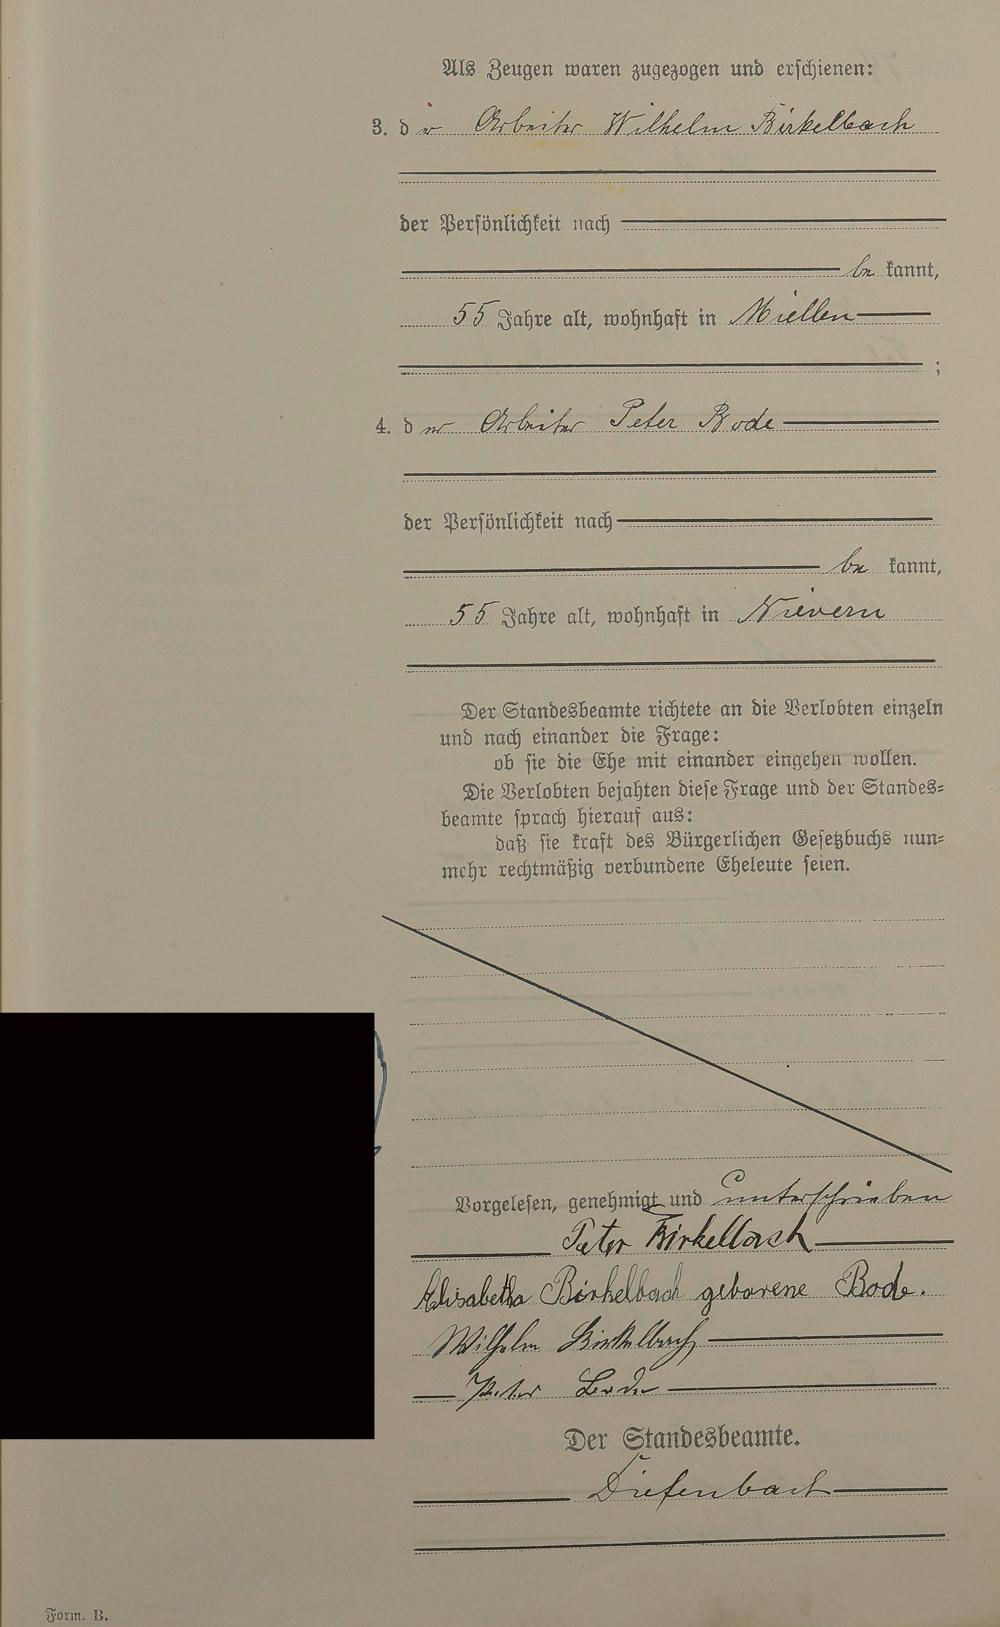 Als Zeugen waren zugezogen und erschienen:
3. der Arbeiter Wilhelm Birkelbach
der Persönlichkeit nach
be kannt,
55 Jahre alt, wohnhaft in Miellen
;
4. der Arbeiter Peter Bode
der Persönlichkeit nach
be kannt,
55 Jahre alt, wohnhaft in Nievern
Der Standesbeamte richtete an die Verlobten einzeln
und nach einander die Frage:
ob sie die Ehe mit einander eingehen wollen.
Die Verlobten bejahten diese Frage und der Standes=
beamte sprach hierauf aus:
daß sie kraft des Bürgerlichen Gesetzbuchs nun=
mehr rechtmäßig verbundene Eheleute seien.
Vorgelesen, genehmigt und unterschrieben
Peter Birkelbach
Elisabetha Birkelbach geborene Bode.
Wilhelm Birkelbach
Peter Bode
Der Standesbeamte.
Diefenbach
Form. B.